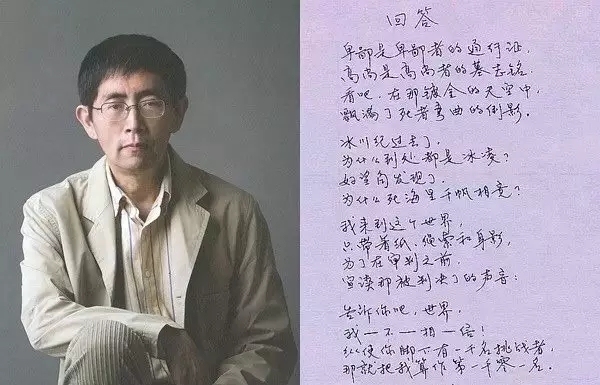 回答
卑鄙是卑鄙者的通行证，
高尚是高尚者的墓志铭，
看吧，在那镀金的天空中，
飘满了死者弯曲的倒影。
冰川纪过去了，
为什么到处都是冰凌？
好望角发现了，
为什么死海里千帆相竞？
我来到这个世界，
只带着纸、绳索和身影，
为了在审判之前，
宣读那被判决了的声音：
告诉你吧，世界，
我—不—相—信！
纵使你脚下有一千名挑战者，
那就把我算作第一千零一名。